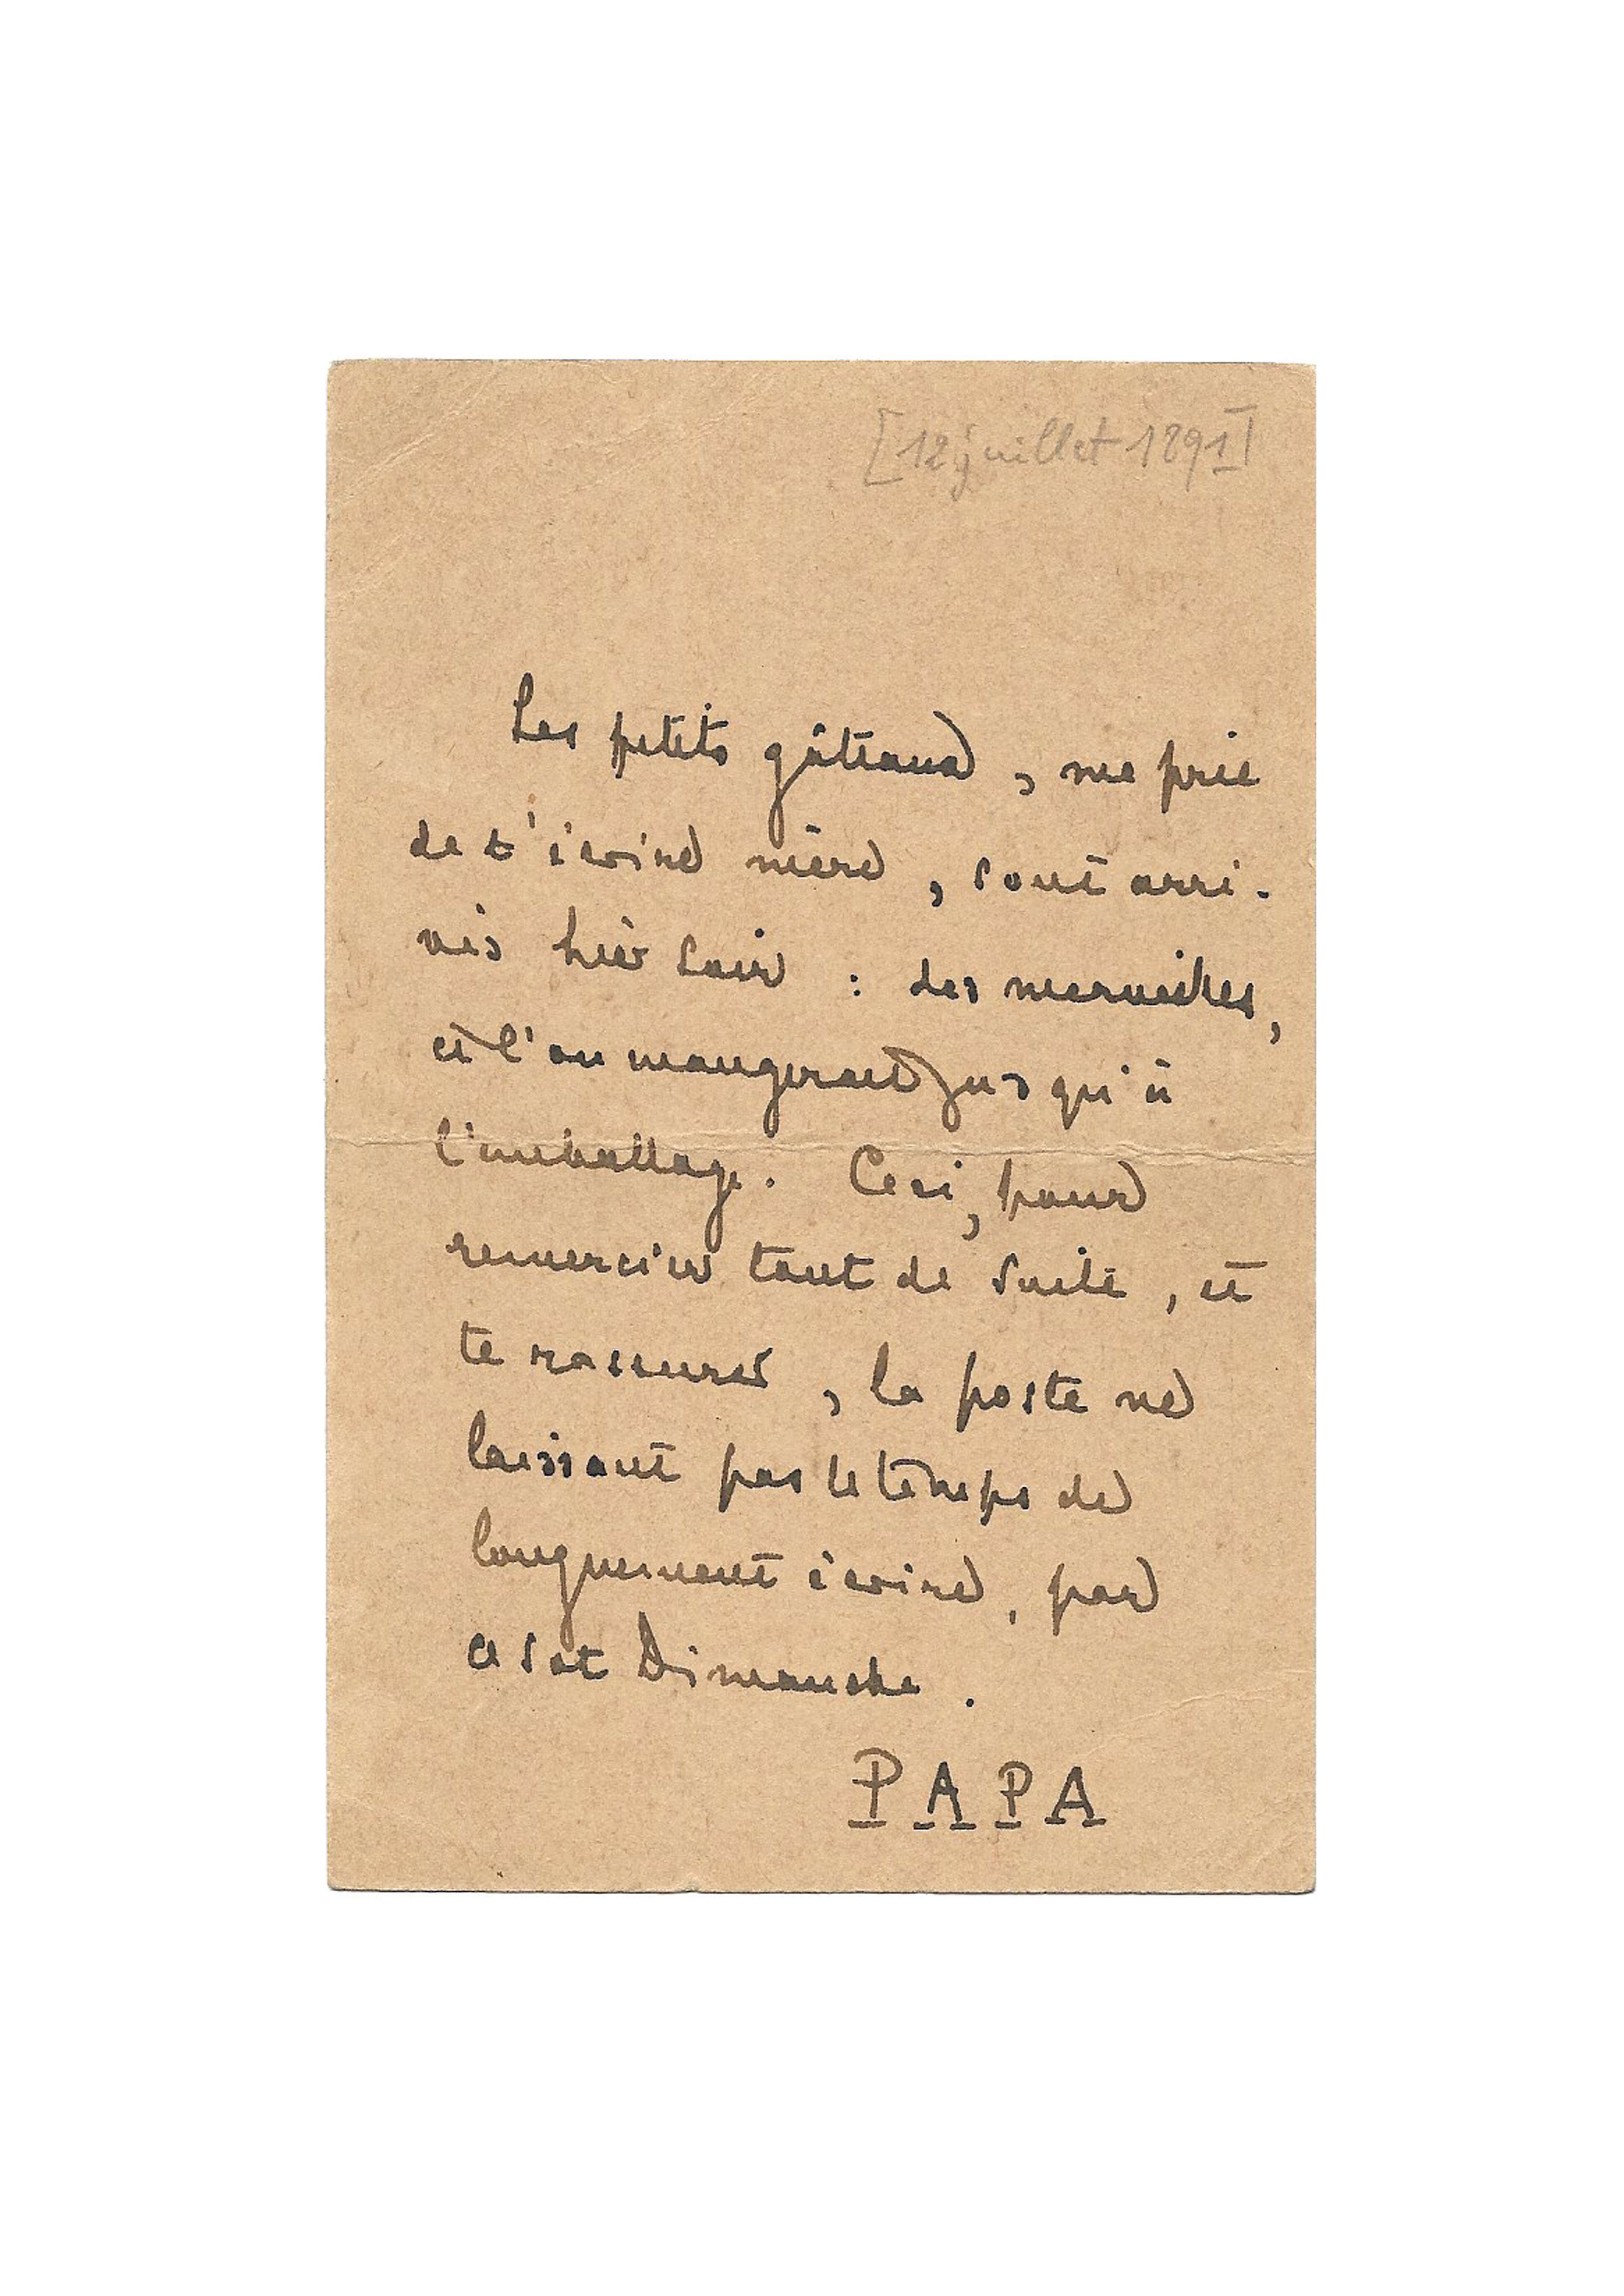 [12 juillet 1891]
Les petits gâteaux, me prie
de t'écrire mère, sont arri-
vés hier soir : des merveilles,
et l'on mangerait jusqu'à
l'emballage. Ceci, pour
remercier tout de suite, et
te rassurer, la poste ne
laissant pas le temps de
longuement écrire, par
ce sot Dimanche.
PAPA